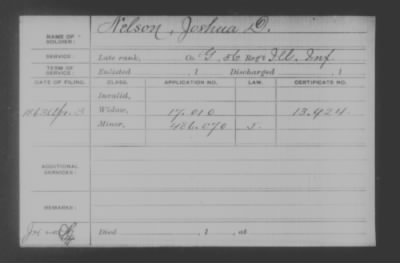 Nelson, Joshua D.
NAME OF SOLDIER:
SERVICE: Late rank, Co. G, 56 Reg't Ill. Inf.
TERM OF SERVICE: Enlisted , 1 Discharged , 1
DATE OF FILING. CLASS. APPLICATION NO. LAW. CERTIFICATE NO.
Invalid,
1863 Apr. 3 Widow, 17.010 13.924
Minor, 486.070
ADDITIONAL SERVICES:
REMARKS:
Died , 1 , at